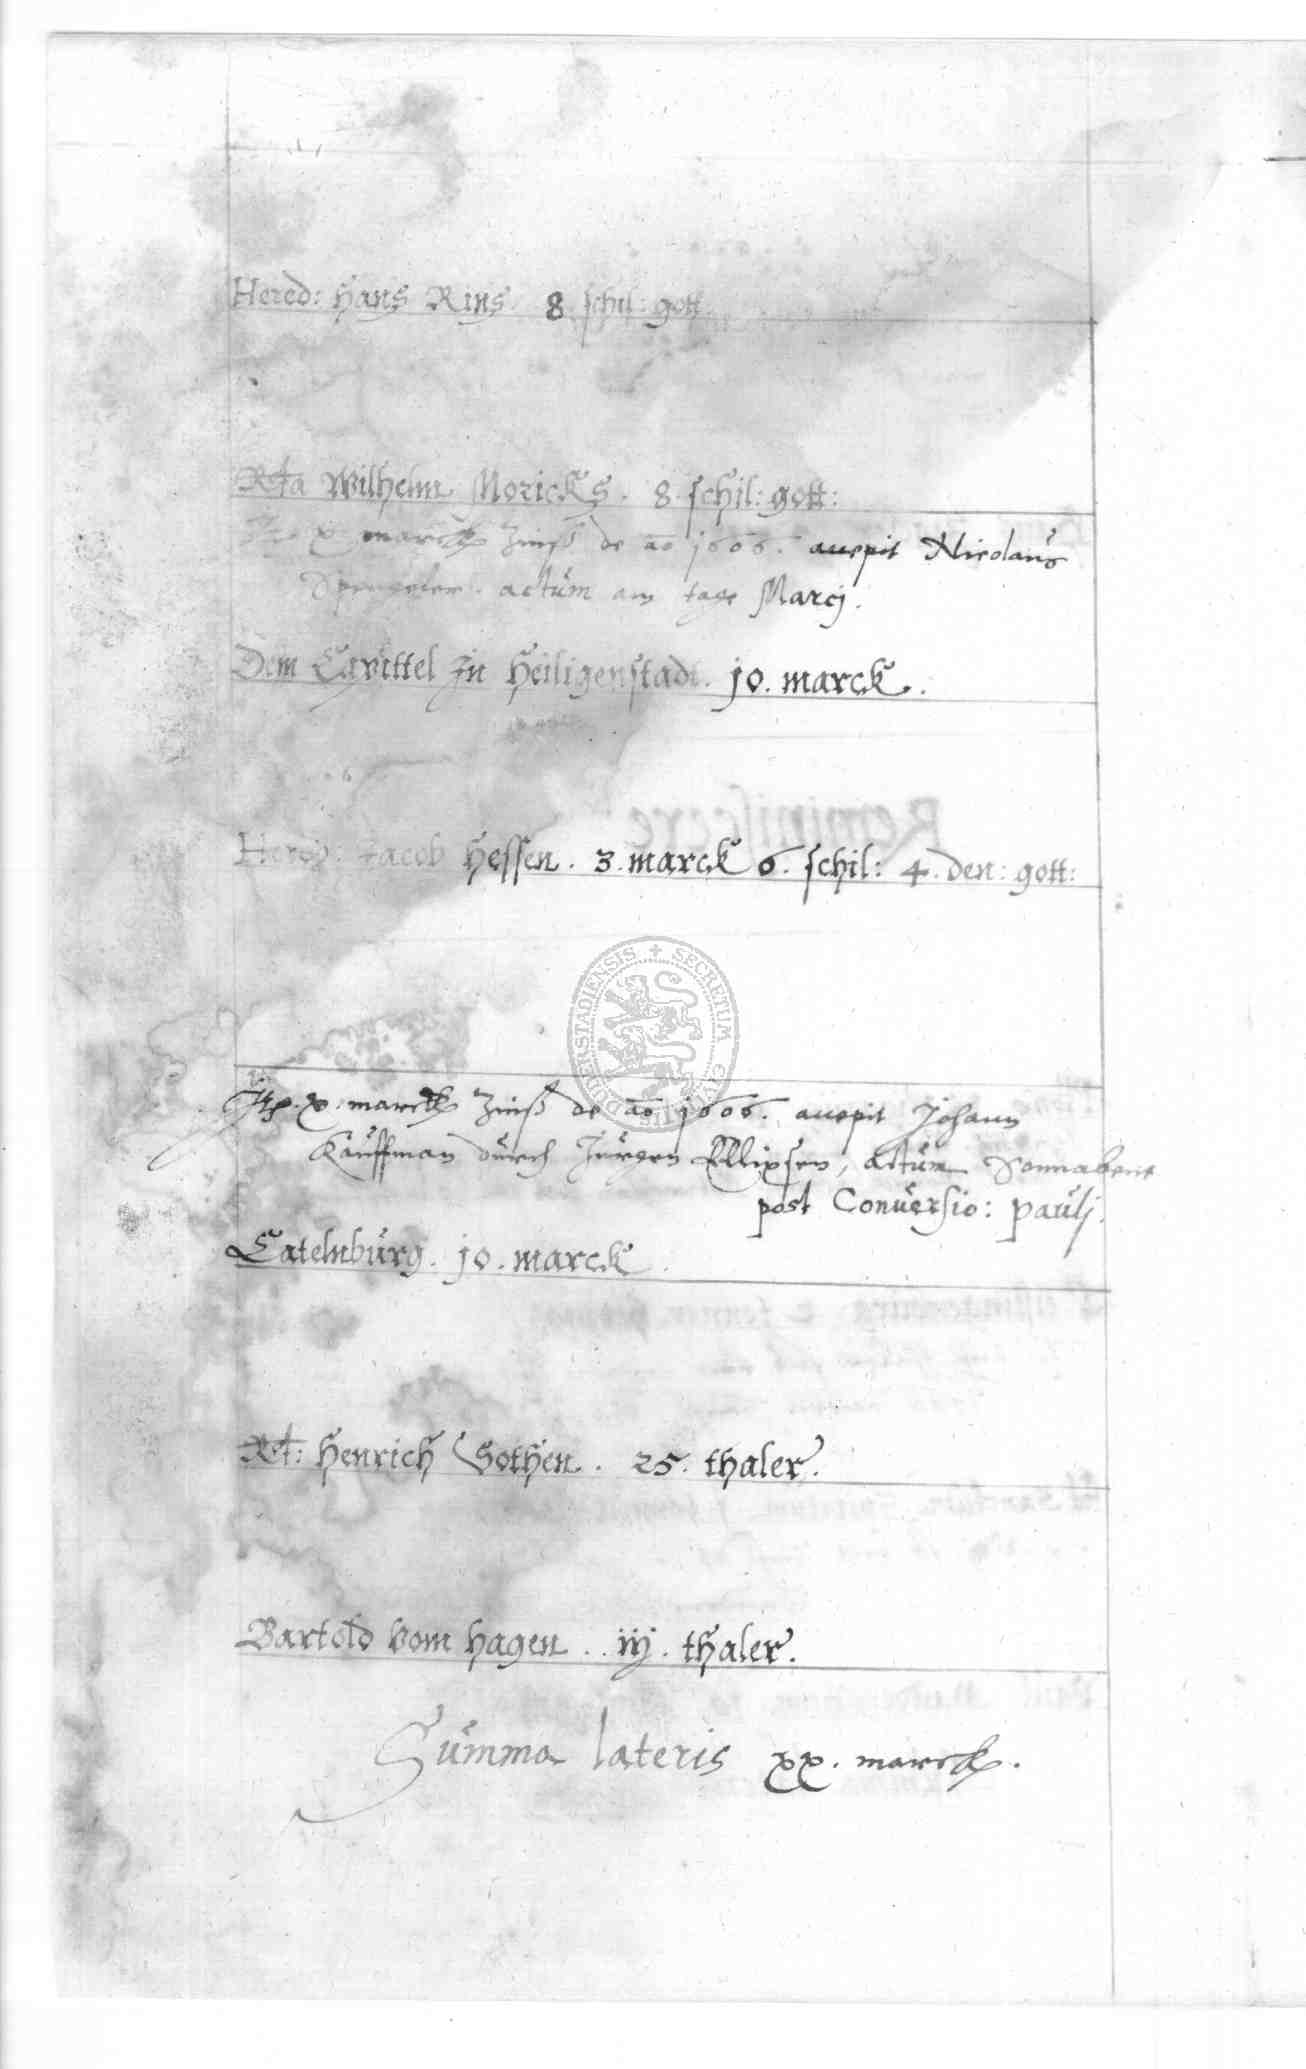 Hered: Hans Rins. 8 schil: gott
Rta Wilhelm Moricks. 8. schil: gott:
x marck Zinß de ao 1606. accepit Nicolaus
Sprengeler. actum am tage Marcj.
Dem Capittel zu Heiligenstadt. 10. marck.
Hered: Jacob Hessen. 3. marck 6. schil: 4. den: gott:
DUDERSTADIENSIS SECRETUM CIVITATIS
Itp. x. marck Zinß de ao 1606. accepit Johann
Kauffman durch Jurgen Ellipsen, actum Sonnabent
post Conuersio: paulj.
Catelnburg. 10. marck.
Rt: Henrich Sothen. 25. thaler.
Bartold vom Hagen. iij. thaler.
Summa lateris xx. marck.